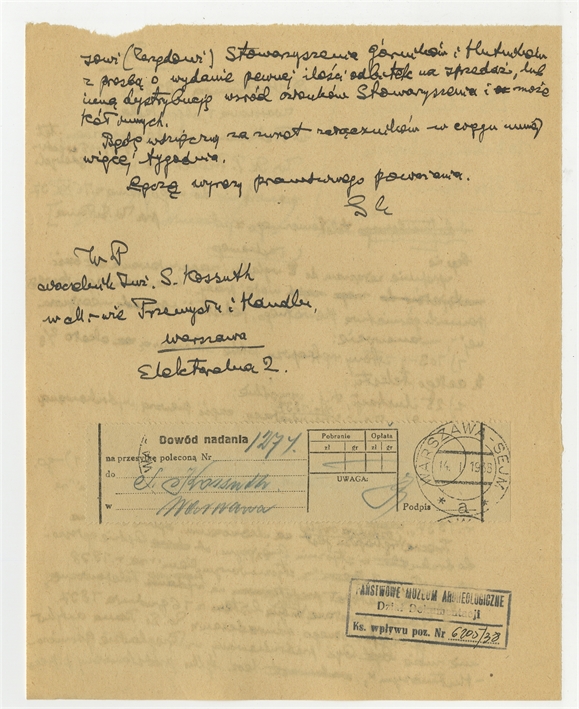 sowi (Zarządowi) Stowarzyszenia górników i Hutników
z prośbą o wydanie pewnej ilości odbitek na sprzedaż, lub
inną dystrybucję wśród członków Stowarzyszenia i może
kół innych.
Będę wdzięczny za zwrot załączników w ciągu
więcej tygodnia.
Łączę wyrazy prawdziwego poważania.
W P
naczelnik Inż. S. Kossuth
w Przemysłu i Handlu,
Warszawa
Elektoralna 2.
Dowód nadania 1274
na przesyłkę poleconą Nr
do S. Kossuth
w Warszawa
Pobranie Opłata
zł gr zł gr
UWAGA:
Podpis
WARSZAWA-SEJM
14. I 193
a
PAŃSTWOWE MUZEUM ARCHEOLOGICZNE
Dział Dokumentacji
Ks. wpływu poz. Nr 6205/38